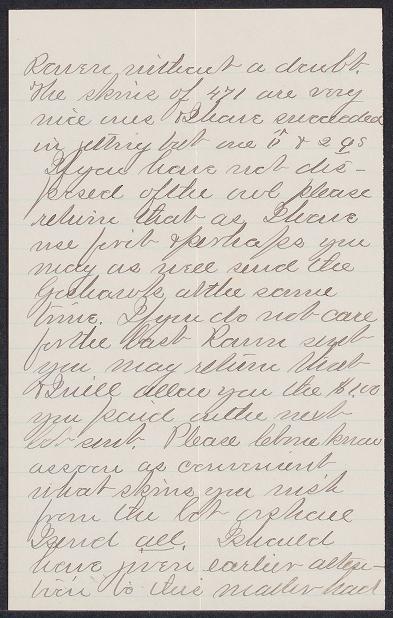 Raven without a doubt.
The skins of 471 are very
nice ones & I have succeeded
in getting but one ♂ & 2 ♀s
If you have not dis-
posed of the owl please
return that as I have
use for it & perhaps you
may as well send the
Goshawk at the same
time. If you do not care
for the last Raven sent
you may return that
& I will allow you the $1.00
you paid on the next
lot sent. Please let me know
as soon as convenient
what skins you wish
from the lot or shall
I send all. I should
have given earlier atten-
tion to this matter had